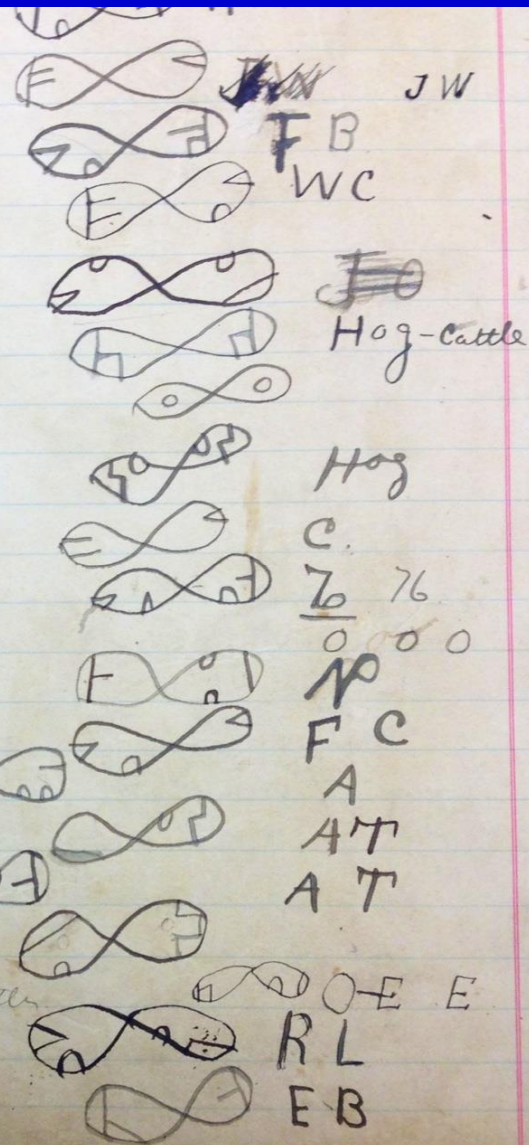 JW JW
F B
WC
JO
Hog-Cattle
Hog
C.
76 76
O O O
N
F C
A
AT
A T
O-E E
R L
E B